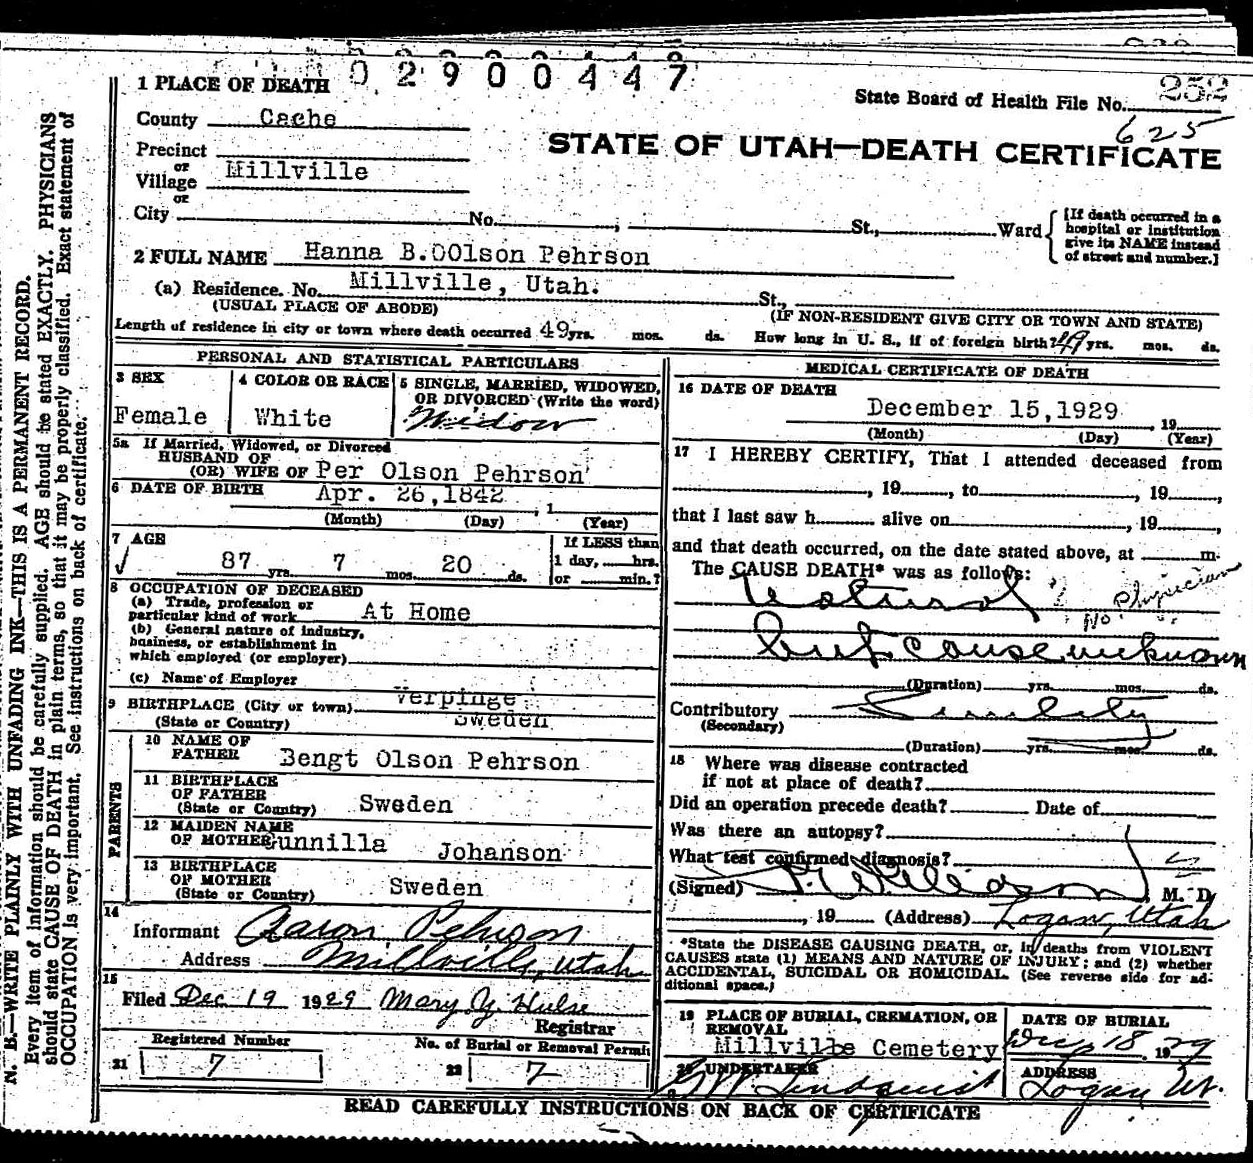 02900447
1 PLACE OF DEATH
State Board of Health File No. 252
625
County Cache
STATE OF UTAH—DEATH CERTIFICATE
Precinct
or
Village Millville
or
City No. ; St., Ward
[If death occurred in a
hospital or institution
give its NAME instead
of street and number.]
2 FULL NAME Hanna B. OOlson Pehrson
(a) Residence. No. Millville, Utah. St.,
(USUAL PLACE OF ABODE) (IF NON-RESIDENT GIVE CITY OR TOWN AND STATE)
Length of residence in city or town where death occurred 49 yrs. mos. ds. How long in U. S., if of foreign birth? 49 yrs. mos. ds.
PERSONAL AND STATISTICAL PARTICULARS
3 SEX
Female
4 COLOR OR RACE
White
5 SINGLE, MARRIED, WIDOWED,
OR DIVORCED (Write the word)
Widow
5a If Married, Widowed, or Divorced
HUSBAND OF
(OR) WIFE OF Per Olson Pehrson
6 DATE OF BIRTH Apr. 26,1842 , 1
(Month) (Day) (Year)
7 AGE
✓ 87 yrs. 7 mos. 20 ds.
If LESS than
1 day, hrs.
or min.?
8 OCCUPATION OF DECEASED
(a) Trade, profession or
particular kind of work At Home
(b) General nature of industry,
business, or establishment in
which employed (or employer)
(c) Name of Employer
9 BIRTHPLACE (City or town) Verpinge
(State or Country) Sweden
PARENTS
10 NAME OF
FATHER Bengt Olson Pehrson
11 BIRTHPLACE
OF FATHER
(State or Country) Sweden
12 MAIDEN NAME
OF MOTHER Gunnilla Johanson
13 BIRTHPLACE
OF MOTHER
(State or Country) Sweden
14
Informant Aaron Pehrson
Address Millville, Utah
15
Filed Dec 19 1929 Mary Y. Hulse
Registrar
Registered Number
21 7
No. of Burial or Removal Permit
22 7
MEDICAL CERTIFICATE OF DEATH
16 DATE OF DEATH
December 15,1929 , 19
(Month) (Day) (Year)
17 I HEREBY CERTIFY, That I attended deceased from
, 19 , to , 19 ,
that I last saw h alive on , 19 ,
and that death occurred, on the date stated above, at m.
The CAUSE DEATH* was as follows:
Natural No Physician
but cause unknown
(Duration) yrs. mos. ds.
Contributory Senility
(Secondary)
(Duration) yrs. mos. ds.
18 Where was disease contracted
if not at place of death?
Did an operation precede death? Date of
Was there an autopsy?
What test confirmed diagnosis?
(Signed) M. D.
, 19 (Address) Logan, Utah
*State the DISEASE CAUSING DEATH, or, in deaths from VIOLENT
CAUSES state (1) MEANS AND NATURE OF INJURY; and (2) whether
ACCIDENTAL, SUICIDAL OR HOMICIDAL. (See reverse side for ad-
ditional space.)
19 PLACE OF BURIAL, CREMATION, OR
REMOVAL
Millville Cemetery
DATE OF BURIAL
Dec 18 1929
20 UNDERTAKER
G W Lindquist
ADDRESS
Logan Ut.
READ CAREFULLY INSTRUCTIONS ON BACK OF CERTIFICATE
N. B.—WRITE PLAINLY WITH UNFADING INK—THIS IS A PERMANENT RECORD.
Every item of information should be carefully supplied. AGE should be stated EXACTLY. PHYSICIANS
should state CAUSE OF DEATH in plain terms, so that it may be properly classified. Exact statement of
OCCUPATION is very important. See instructions on back of certificate.